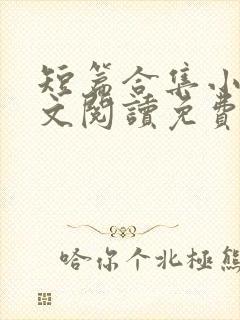 短篇合集小
文閱讀免費
哈你个北極熊